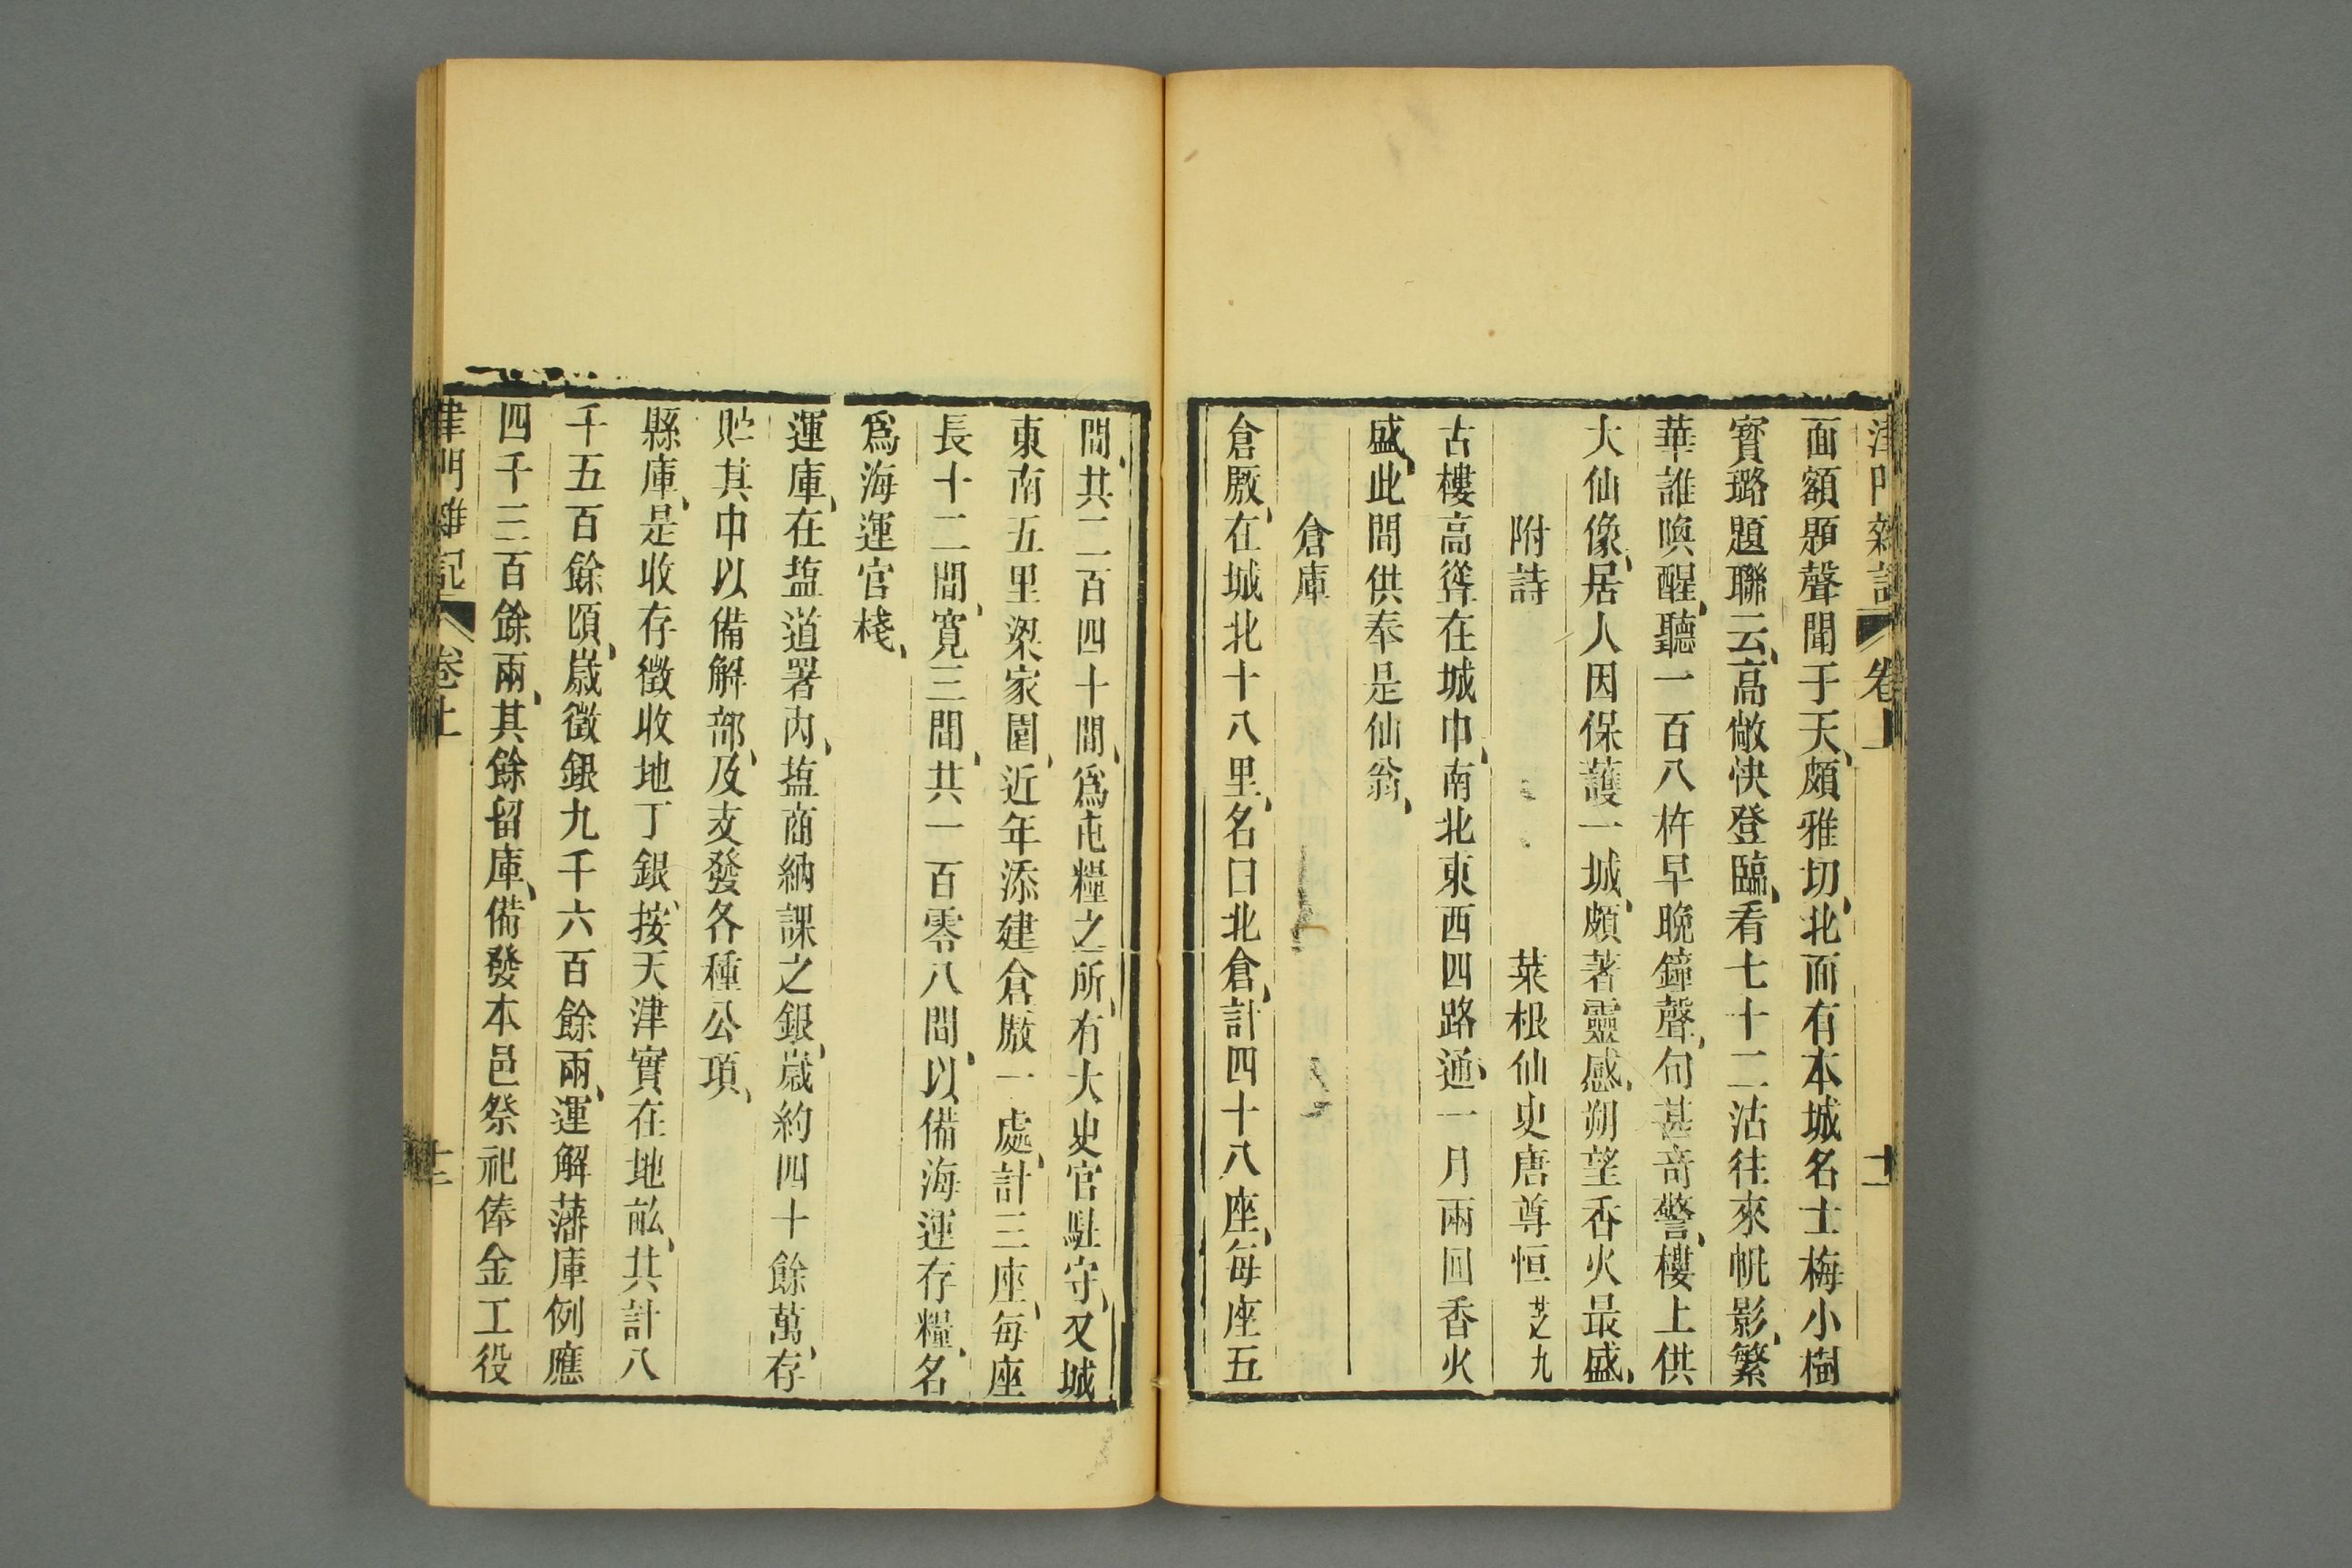 津門雜記 卷上 十一
面額題聲聞于天、頗雅切、北面有本城名士梅小樹
寶璐題聯云、高敞快登臨、看七十二沽往來帆影、繁
華誰喚醒、聽一百八杵早晚鐘聲、句甚奇警、樓上供
大仙像、居人因保護一城、頗著靈感、朔望香火最盛、
附詩 菜根仙史唐尊恒芝九
古樓高聳在城中、南北東西四路通、一月兩回香火
盛、此間供奉是仙翁、
倉庫
倉厫、在城北十八里、名曰北倉、計四十八座、每座五
間、共二百四十間、爲屯糧之所、有大史官駐守、又城
東南五里梁家園、近年添建倉厫一處、計三座、每座
長十二間、寬三間、共一百零八間、以備海運存糧、名
爲海運官棧、
運庫、在塩道署內、塩商納課之銀、歲約四十餘萬、存
貯其中以備解部、及支發各種公項、
縣庫、是收存徵收地丁銀、按天津實在地畝、共計八
千五百餘頃、歲徵銀九千六百餘兩、運解藩庫例應
四千三百餘兩、其餘留庫、備發本邑祭祀俸金工役
津門雜記 卷上